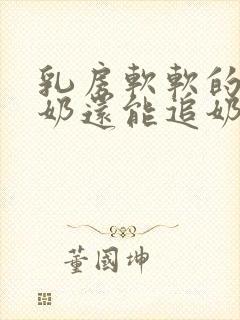 乳房軟軟的
奶還能追奶
董國坤